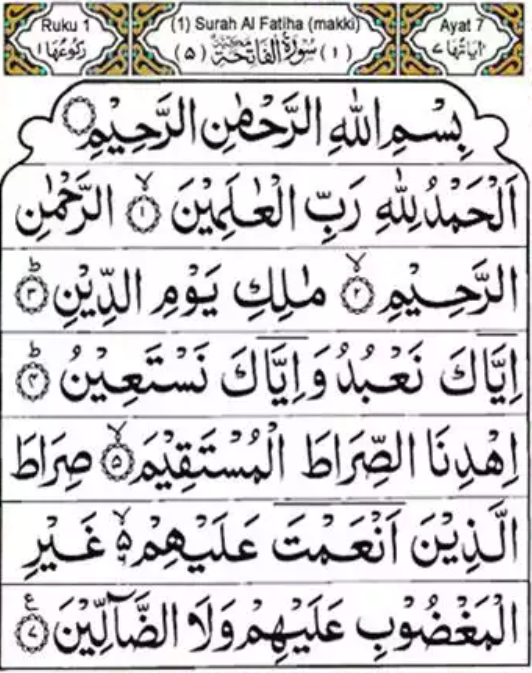 Ruku 1 (1) Surah Al Fatiha (makki) Ayat 7
رُكُوْعُهَا ١ (٥) سُوْرَةُ الْفَاتِحَةِ مَكِّيَّةٌ (١) اٰيَاتُهَا ٧
بِسْمِ اللّٰهِ الرَّحْمٰنِ الرَّحِيْمِ
اَلْحَمْدُ لِلّٰهِ رَبِّ الْعٰلَمِيْنَ ۙ﴿١﴾ الرَّحْمٰنِ
الرَّحِيْمِ ۙ﴿٢﴾ مٰلِكِ يَوْمِ الدِّيْنِ ؕ﴿٣﴾
اِيَّاكَ نَعْبُدُ وَاِيَّاكَ نَسْتَعِيْنُ ؕ﴿٤﴾
اِهْدِنَا الصِّرَاطَ الْمُسْتَقِيْمَ ۙ﴿٥﴾ صِرَاطَ
الَّذِيْنَ اَنْعَمْتَ عَلَيْهِمْ ۙ۵ غَيْرِ
الْمَغْضُوْبِ عَلَيْهِمْ وَلَا الضَّآلِّيْنَ ع﴿٧﴾